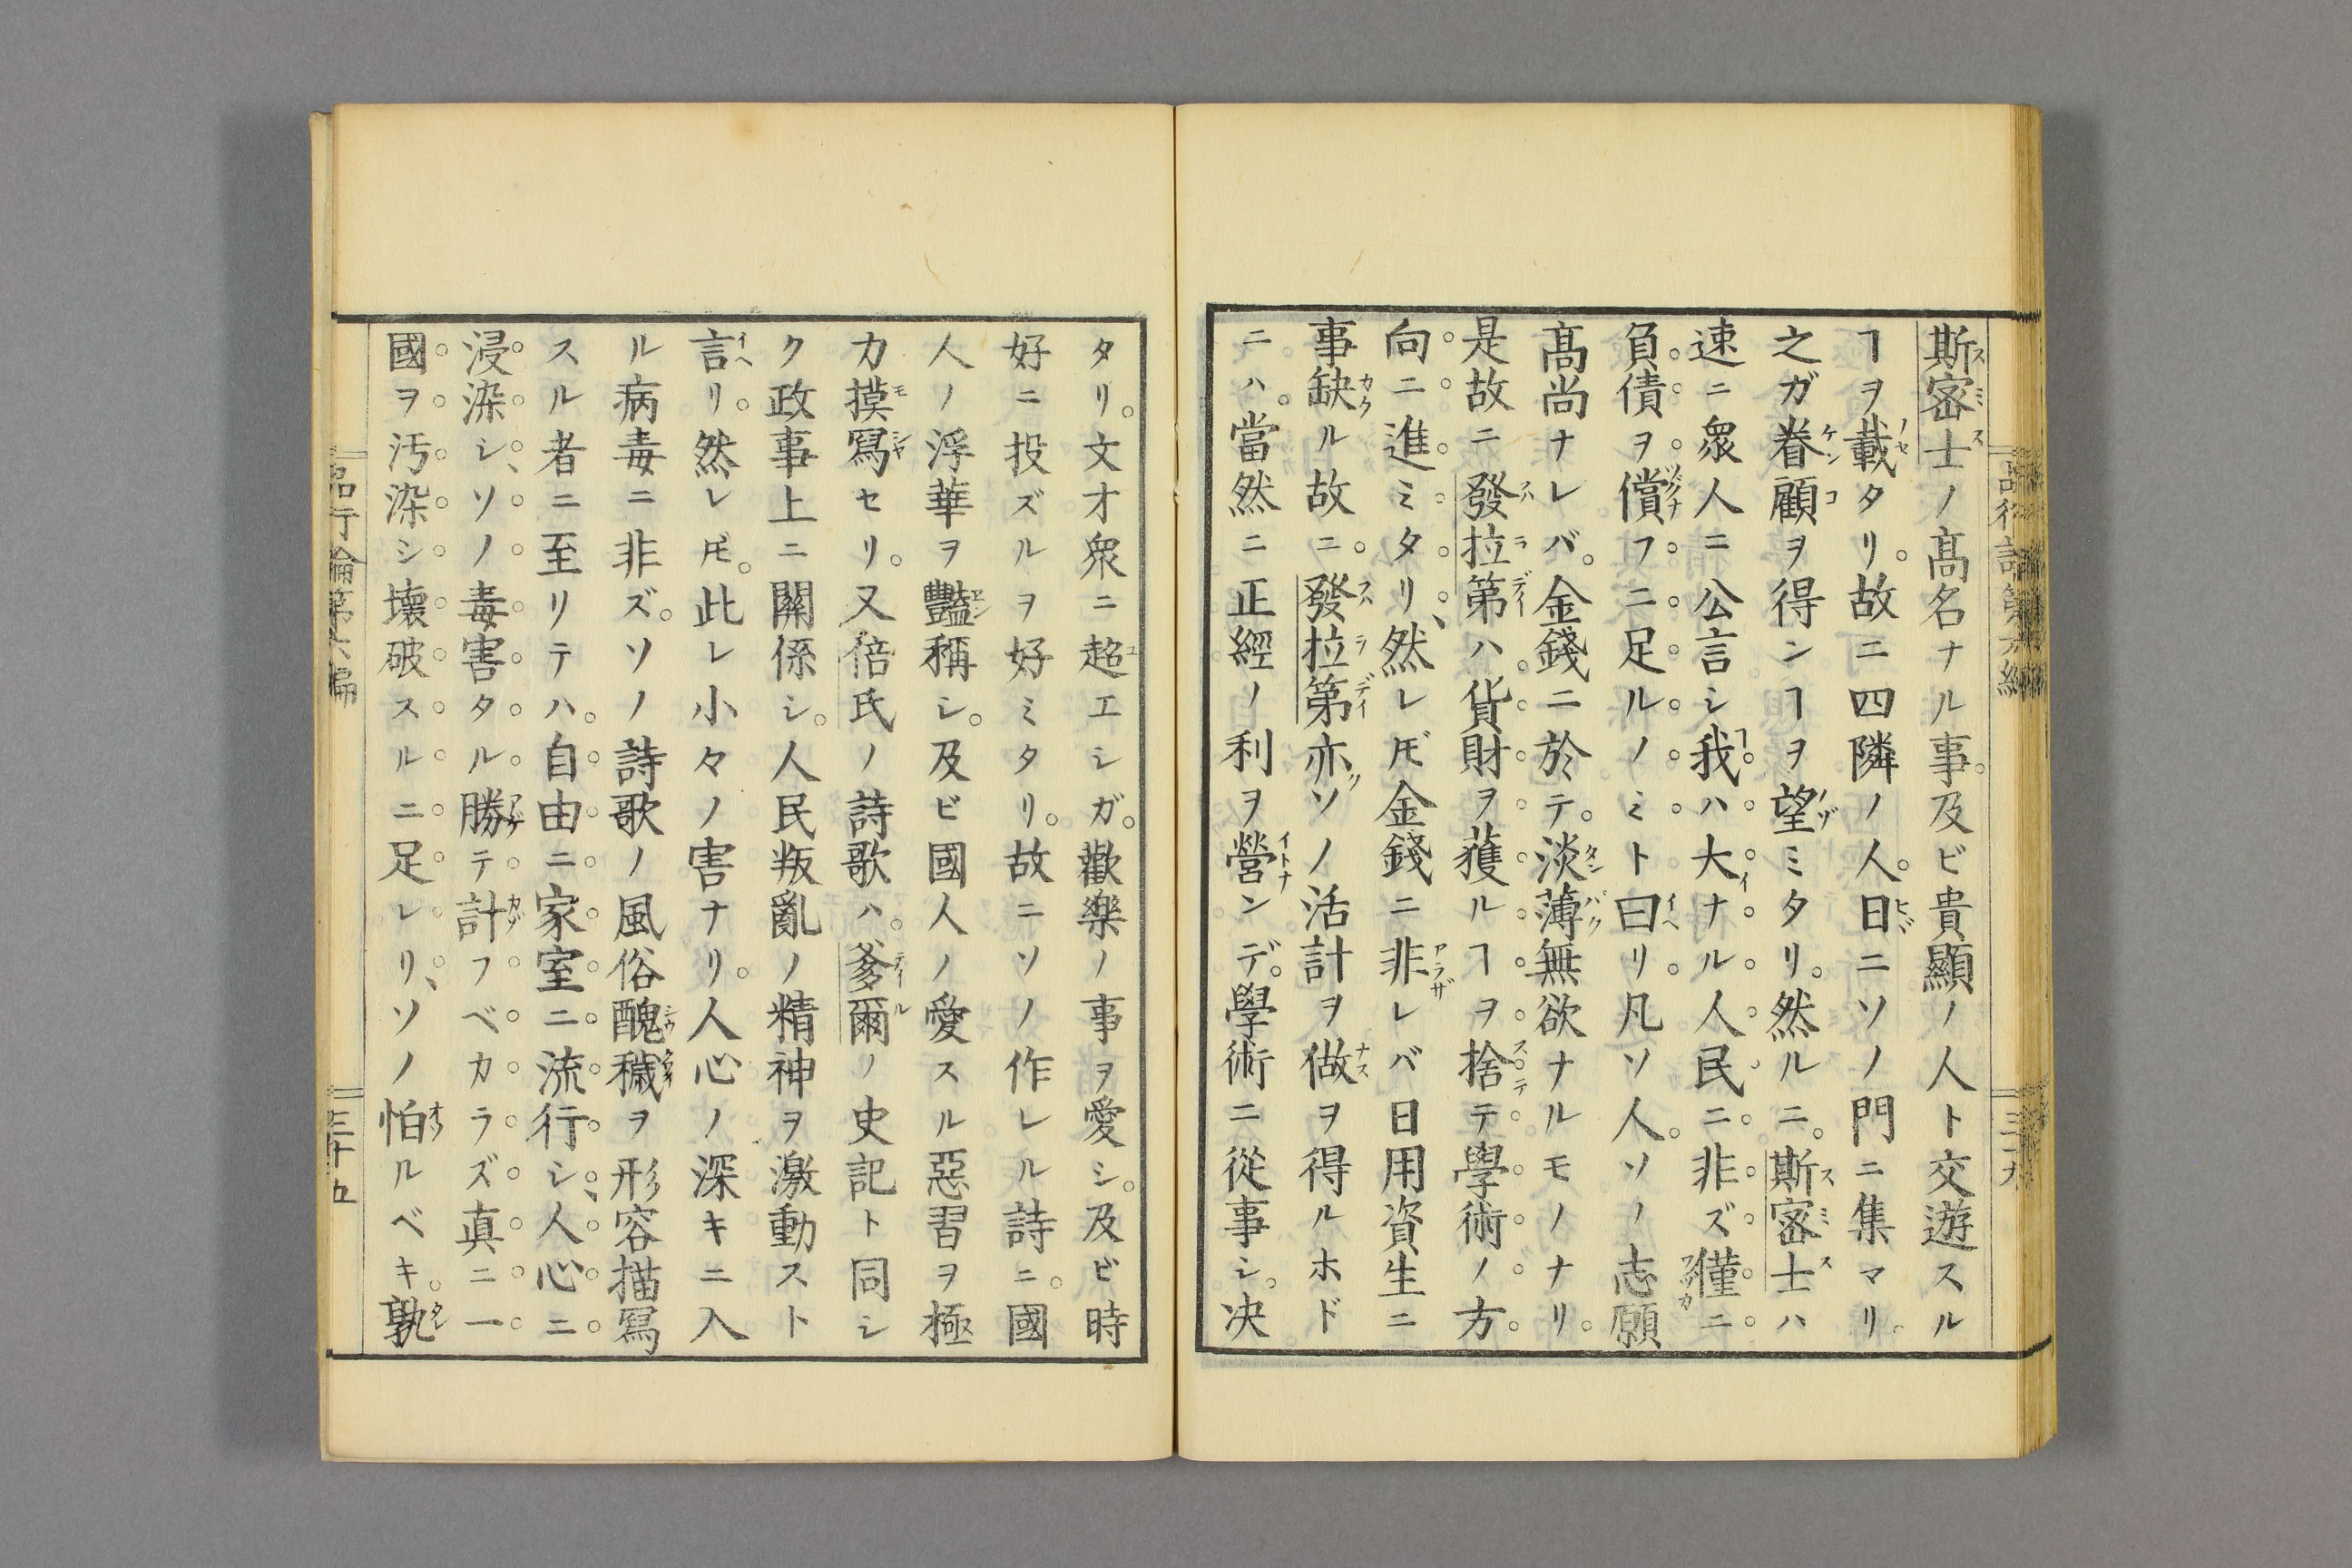 斯密士ノ髙名ナル事。及ビ貴顯ノ人ト交遊スル
ヿヲ載タリ。故ニ四隣ノ人。日ニソノ門ニ集マリ。
之ガ眷顧ヲ得ンヿヲ望ミタリ。然ルニ。斯密士ハ
速ニ衆人ニ公言シ我ハ大ナル人民ニ非ズ僅ニ
負債ヲ償フニ足ルノミト曰リ凡ソ人。ソノ志願
髙尚ナレバ。金錢ニ於テ。淡薄無欲ナルモノナリ。
是故ニ發拉第ハ貨財ヲ獲ルヿヲ捨テ學術ノ方
向ニ進ミタリ、然レ𪜈金錢ニ非レバ日用資生ニ
事缺ル故ニ。發拉第亦ソノ活計ヲ做ヲ得ルホド
ニハ。當然ニ正經ノ利ヲ營ンデ。學術ニ從事シ。决
タリ。文才衆ニ超エシガ。歡樂ノ事ヲ愛シ。及ビ時
好ニ投ズルヲ好ミタリ。故ニソノ作レル詩ニ。國
人ノ浮華ヲ豔稱シ。及ビ國人ノ愛スル惡習ヲ極
力摸寫セリ。又倍氏ノ詩歌ハ。爹爾ノ史記ト同シ
ク政事上ニ關係シ。人民叛亂ノ精神ヲ激動スト
言リ。然レ𪜈。此レ小々ノ害ナリ。人心ノ深キニ入
ル病毒ニ非ズ。ソノ詩歌ノ風俗醜穢ヲ形容描寫
スル者ニ至リテハ。自由ニ家室ニ流行シ、人心ニ
浸染シ、ソノ毒害タル勝テ計フベカラズ真ニ一
國ヲ汚染シ壊破スルニ足レリ、ソノ怕ルベキ。孰
品行論第六編
三十五